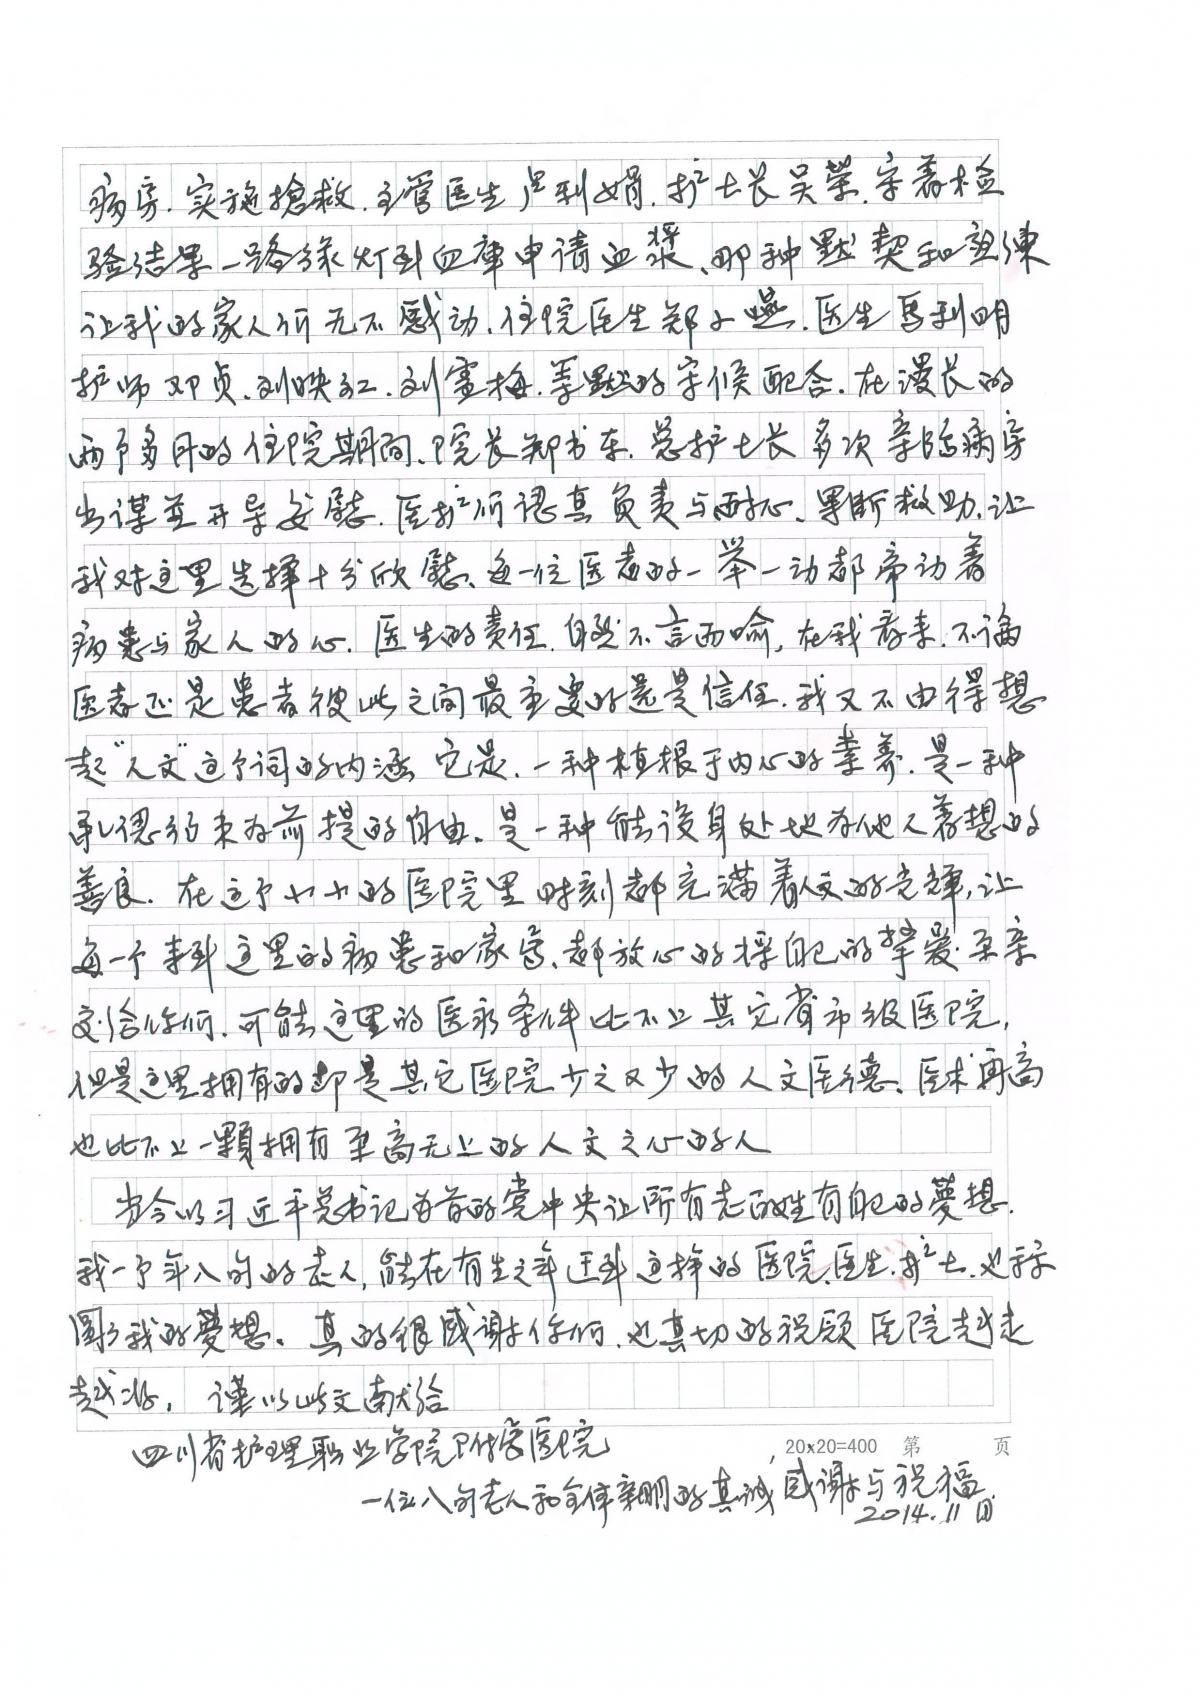 病房.实施搶救.主管医生卢利娟.护士长吴荣.守着检
验结果一路绿灯到血庫申请血浆、那种默契和熟练
让我的家人们无不感动.住院医生郑小燕.医生马利明
护师邓贞.刘映红.刘雪梅.等默默的守候配合.在漫长的
两个多月的住院期间、院长郑书东.总护士长多次亲临病房
出谋并开导安慰.医护们認真负责与耐心、果断救助.让
我对这里选择十分欣慰、每一位医者的一举一动都带动着
病患与家人的心.医生的责任.自然不言而喻,在我看来.不論
医者还是患者彼此之间最重要的還是信任.我又不由得想
起"人文"这个词的内涵 它是.一种植根于内心的素养.是一种
承认约束为前提的自由、是一种能设身处地为他人着想的
善良.在这个小小的医院里时刻都充满着人文的光輝,让
每一个来到这里的病患和家属、都放心的将自己的挚爱.至亲
交给你们.可能这里的医疗条件比不上其它省市级医院,
但是这里拥有的却是其它医院少之又少的人文医德、医术再高
也比不上一顆拥有至高无上的人文之心的人
当今以习近平总书记为首的党中央让所有老百姓有自己的夢想.
我一个年八旬的老人,能在有生之年遇到这样的医院.医生.护士.也
圆了我的夢想。真的很感謝你们.也真切的祝願医院越走
越好. 谨以此文献给
四川省护理职业学院附属医院
20x20=400 第 页
一位八旬老人和全体亲朋的真诚感谢与祝福.
2014.11月